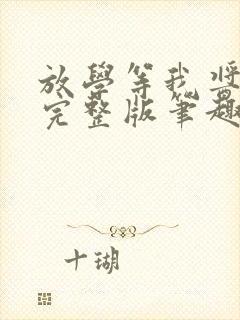 放學等我
完整版筆趣
十瑚